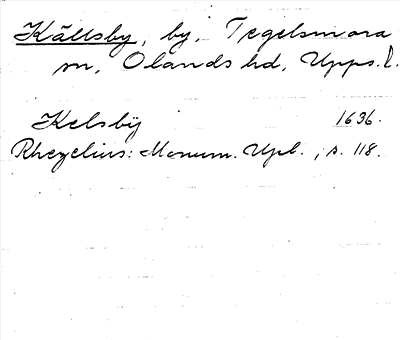 Källsby, by, Tegelsmora
sn, Olands hd, Upps. l.
Kelsbÿ 1636.
Rhezelius: Monum. Upl. , s. 118.